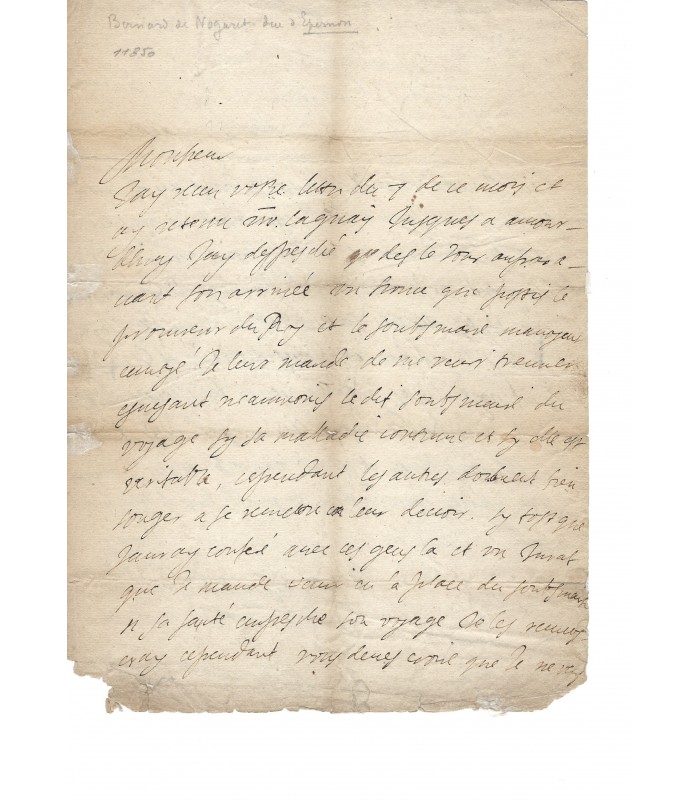 Bernard de Nogaret duc d'Epernon
11350
Monsieur
Jay receu vostre lettre du 7 de ce mois et
ay retenu Mr. Lagnay jusques a
Jay despesché des le jour aupara-
uant son arrivée un homme que
procureur du Roy et le soubsmaire
envoyé Je leur mande de me venir trouuer
neaumoins ledit soubsmaire du
voyage sy sa malladie continue et sy elle est
veritable, cependant les autres doibuent bien
songer a se remettre en leur deuoir. sy tost que
jauray conferé avec ces gens la et un Jurat
que Je mande venir en la place du soubsmaire
si sa santé empesche son voyage Je les
cependant vous deues croire que Je ne